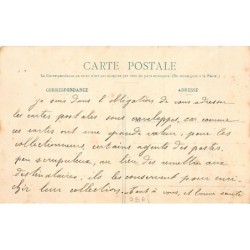 CARTE POSTALE
La Correspondance au recto n'est pas acceptée par tous les pays étrangers. (Se renseigner à la Poste.)
CORRESPONDANCE
ADRESSE
je suis dans l'obligation de vous adresser
les cartes postales sous enveloppes, car comme
ces cartes ont une grande valeur, pour les
collectionneurs, certains agents des postes,
peu scrupuleux, au lieu de les remettre aux
destinataires, ils les conservent pour enri-
chir leur collection. Bont à vous, et bonne santé